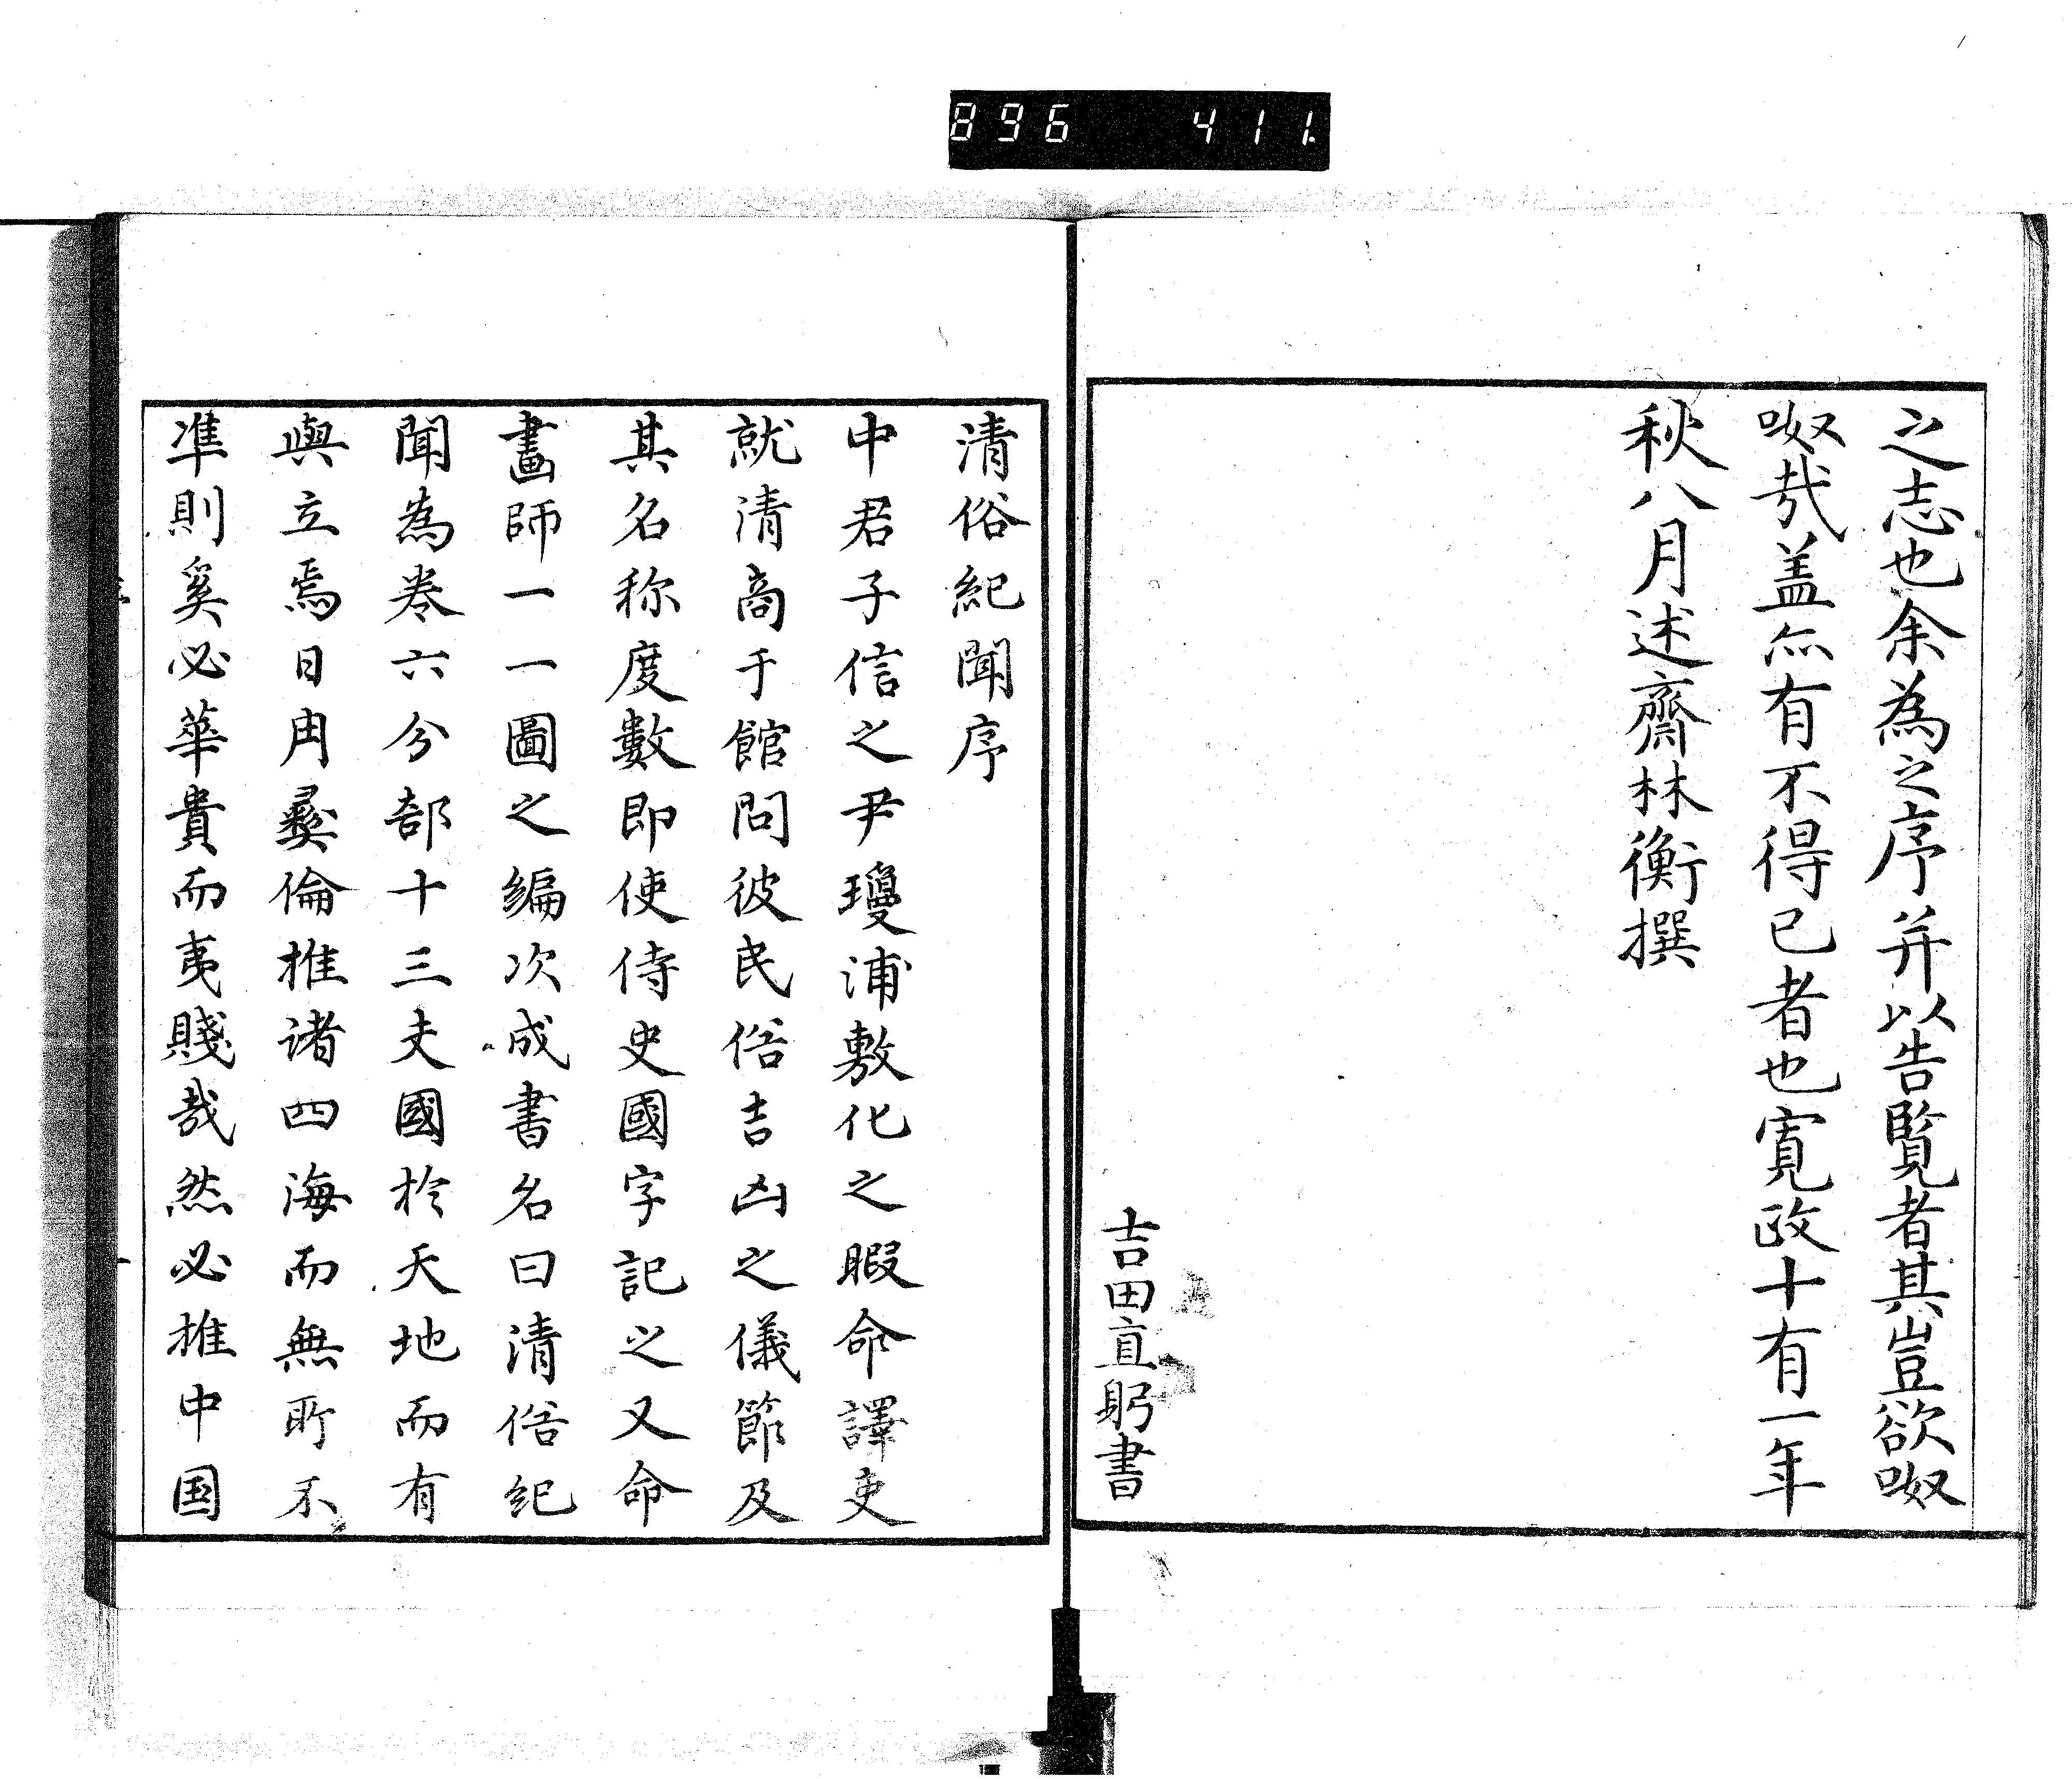 896 411
之志也余為之序并以告覧者其豈欲呶
呶㢤盖亦有不得已者也寛政十有一年
秋八月述齋林衡撰
吉田直躬書
清俗紀聞序
中君子信之尹瓊浦敷化之暇命譯吏
就清商于館問彼民俗吉凶之儀節及
其名称度數即使侍史國字記之又命
畫師一一圖之編次成書名曰清俗紀
聞為巻六分部十三夫國於天地而有
與立焉日用彛倫推諸四海而無所不
凖則奚必華貴而夷賤哉然必推中国